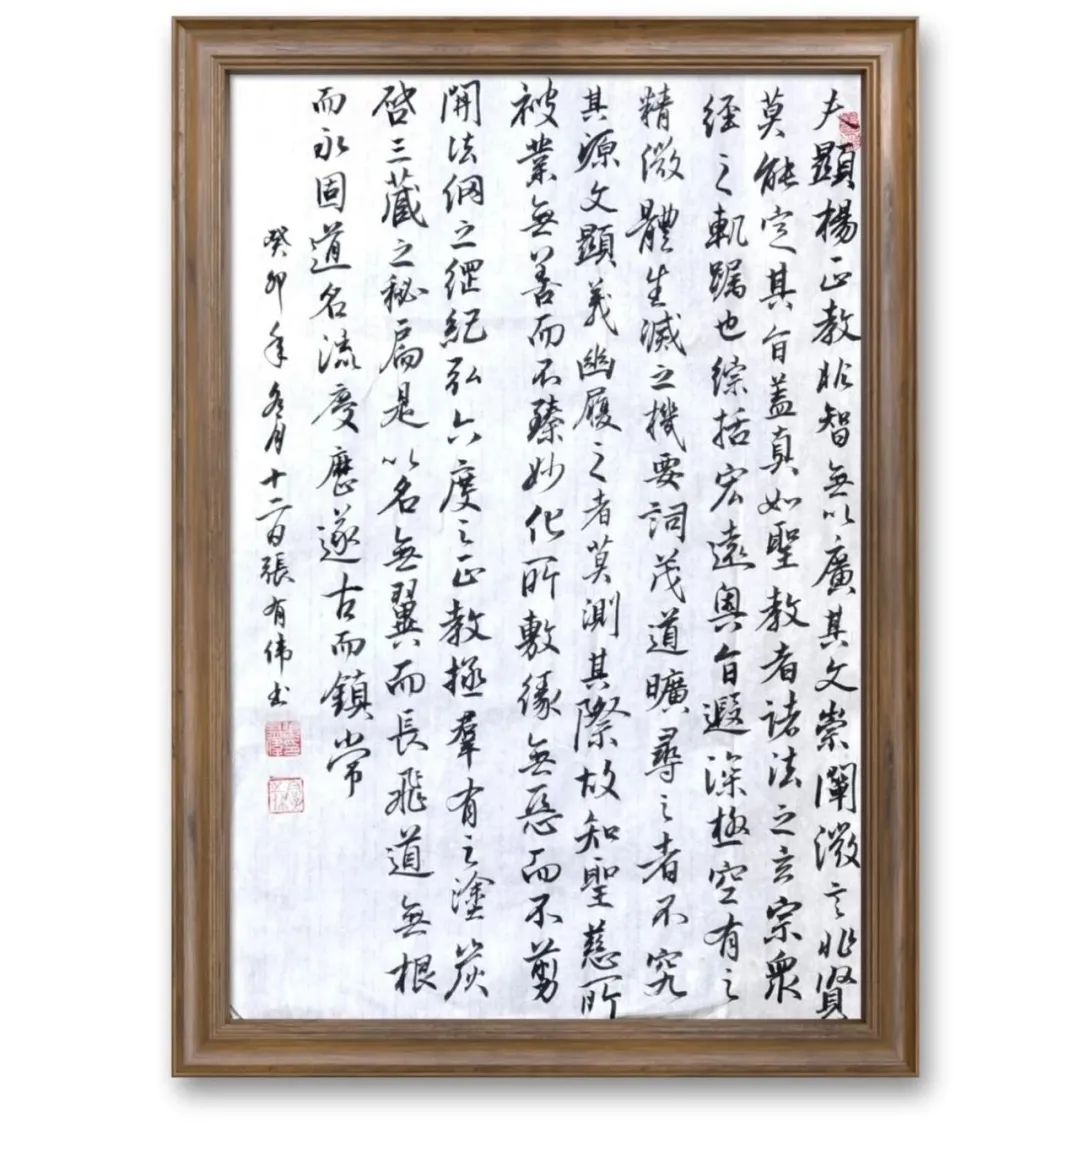 夫顯楊正教非智無以廣其文崇闡微言非賢
莫能定其旨蓋真如聖教者諸法之玄宗衆
經之軌躅也綜括宏遠奧旨遐深極空有之
精微體生滅之機要詞茂道曠尋之者不究
其源文顯義幽履之者莫測其際故知聖慈所
被業無善而不臻妙化所敷緣無惡而不剪
開法網之綱紀弘六度之正教拯羣有之塗炭
啓三藏之秘扃是以名無翼而長飛道無根
而永固道名流慶歷遂古而鎮常
癸卯年冬月十二日張有伟书